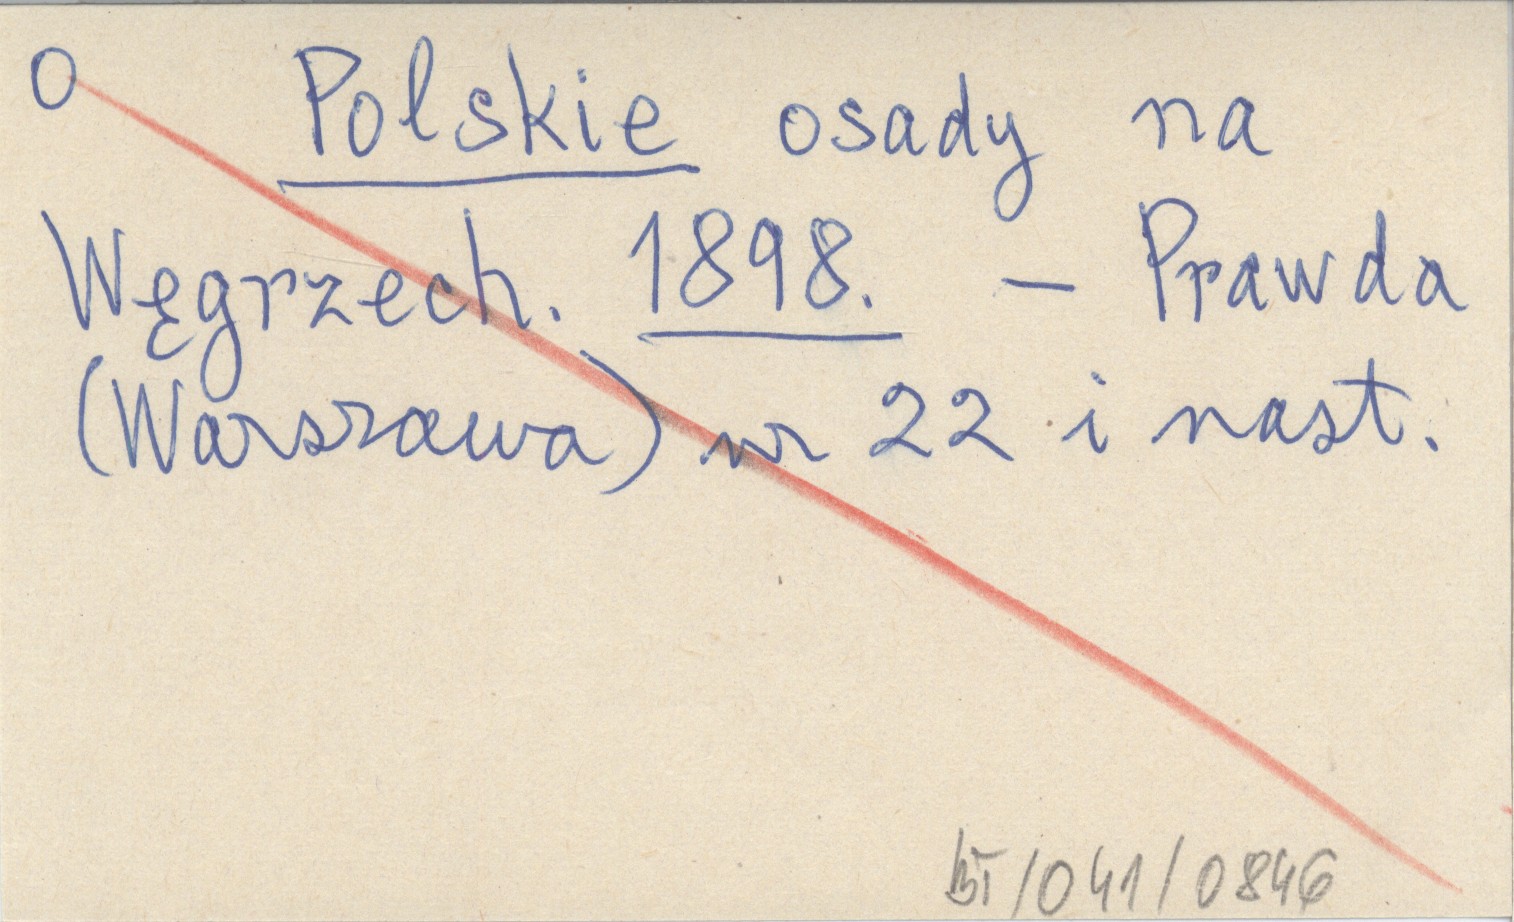 O Polskie osady na
Węgrzech. 1898. – Prawda
(Warszawa) nr 22 i nast.
BT/041/0846